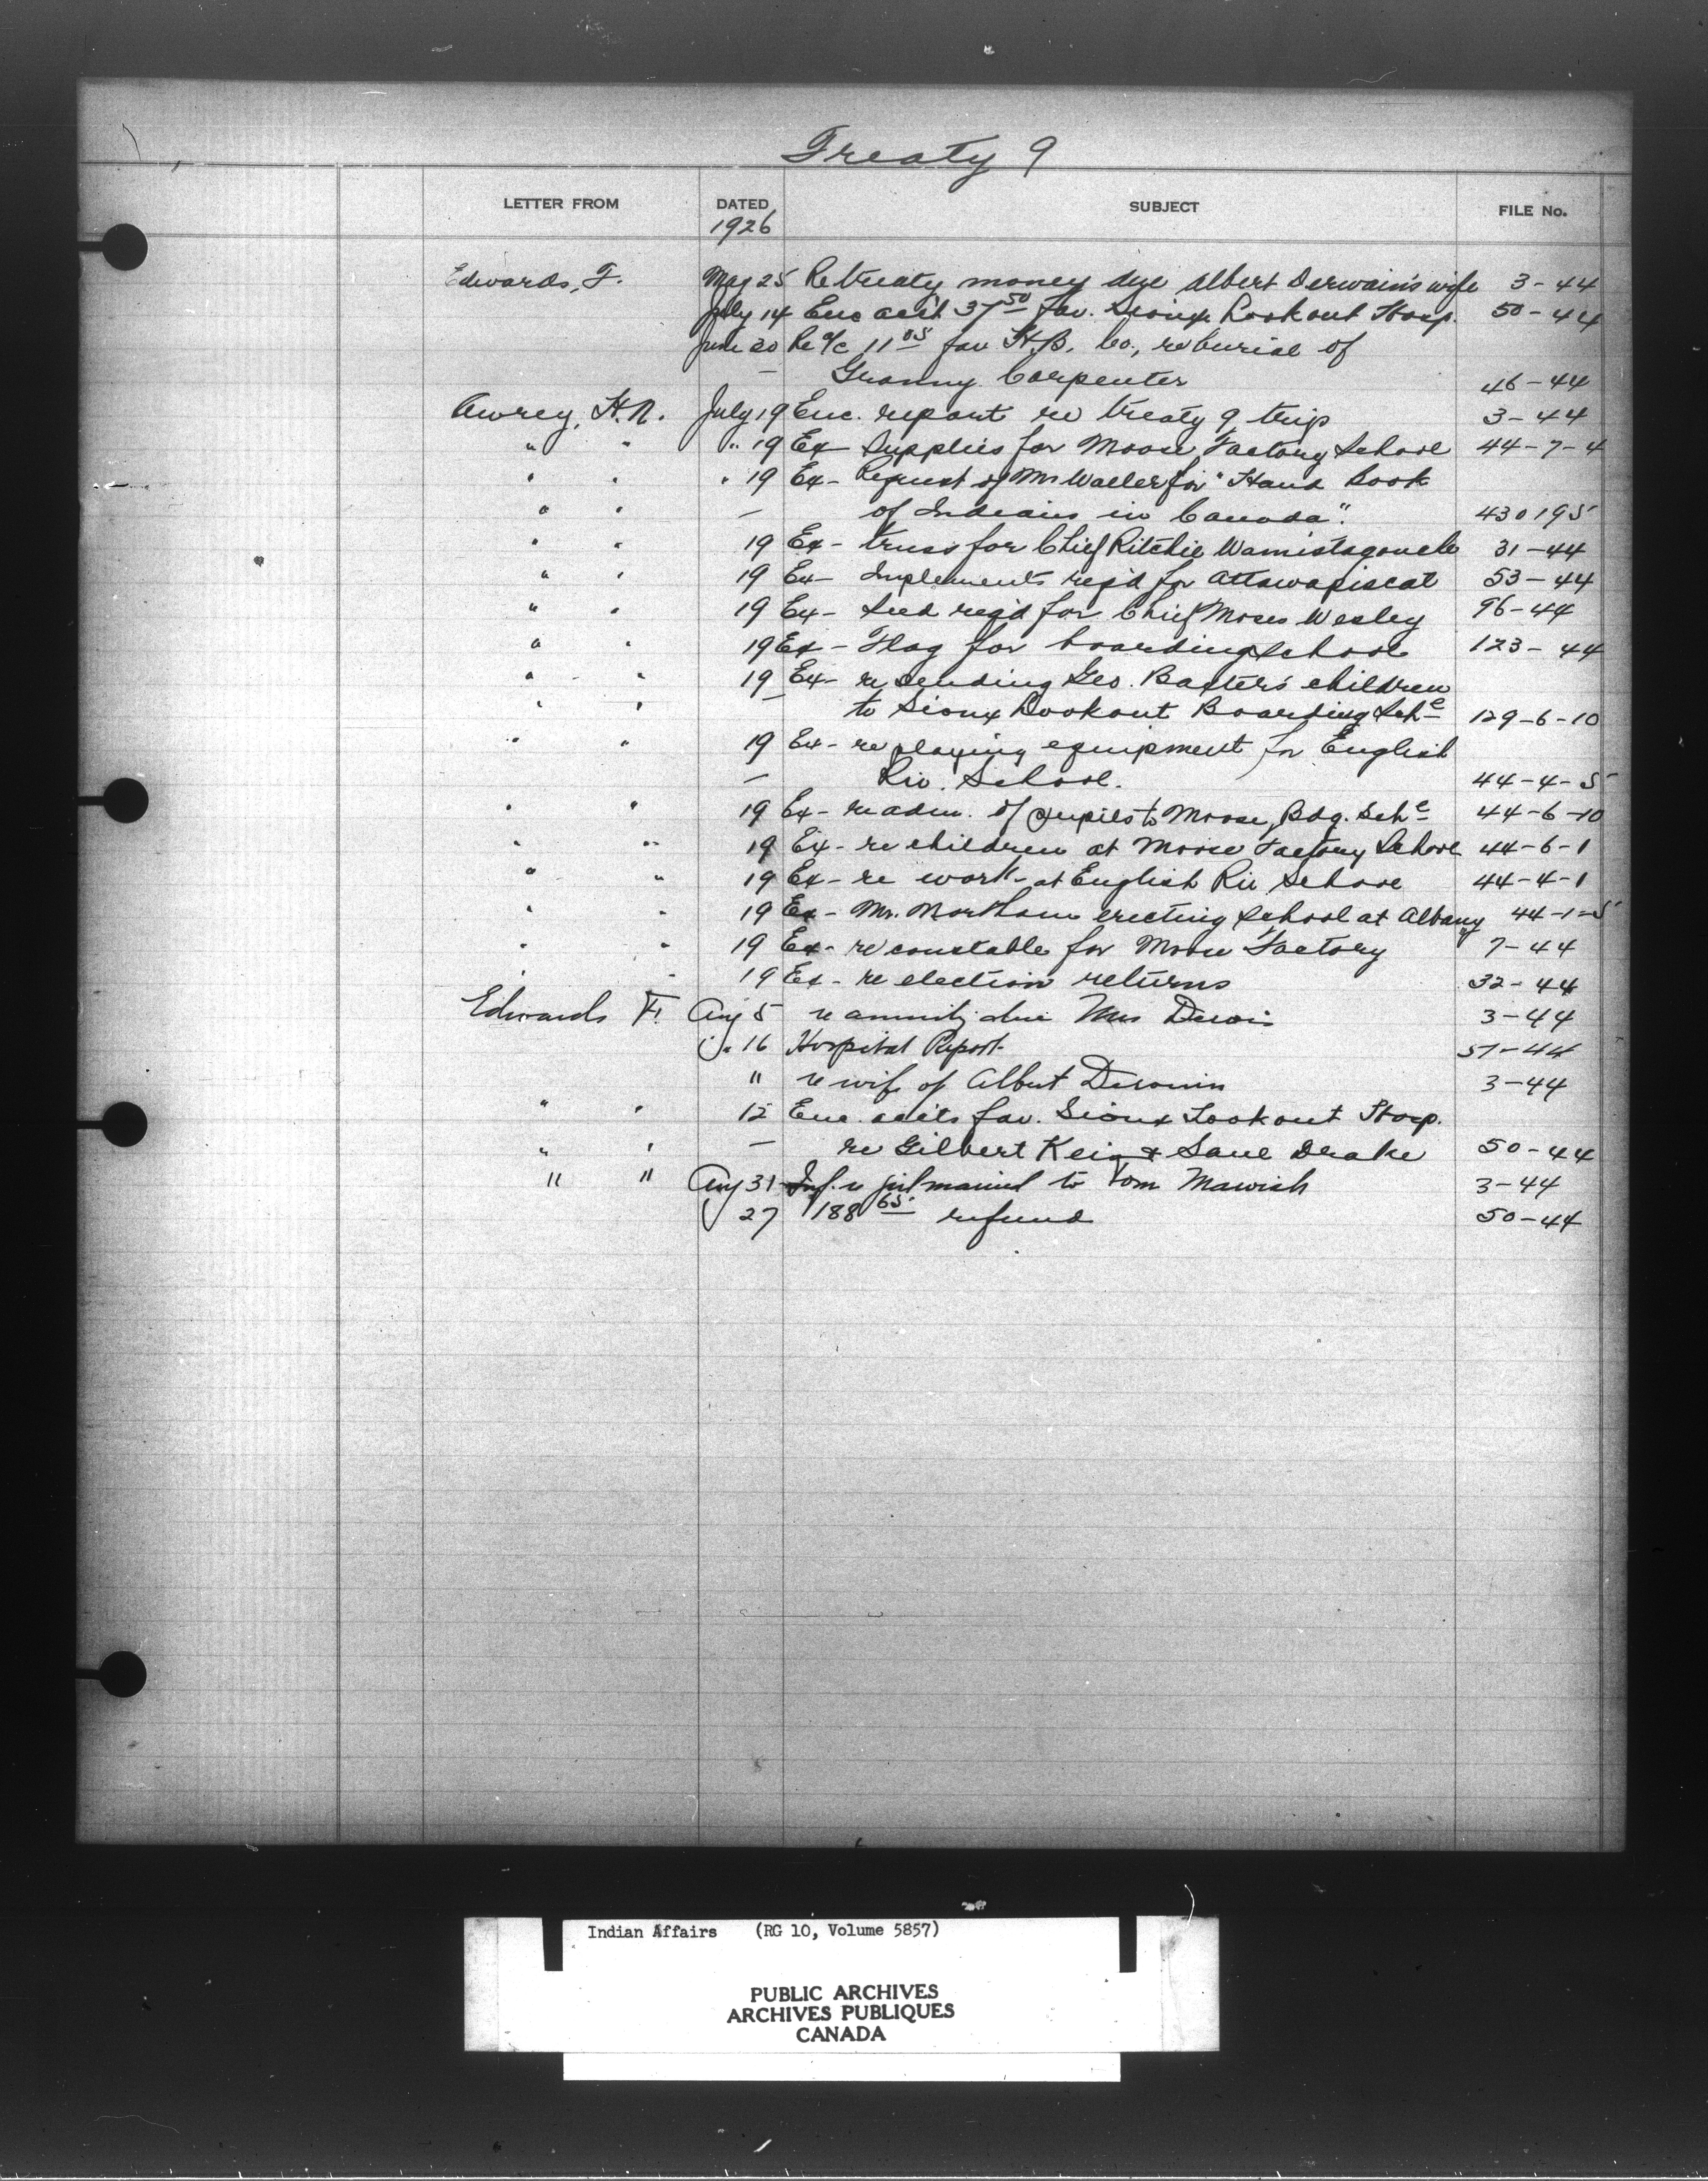 Treaty 9
LETTER FROM DATED SUBJECT FILE No.
1926
Edwards, F. May 25 Re treaty money due Albert Derwain's wife 3-44
July 14 Enc acct 37 50 fav. Sioux Lookout Hosp. 50-44
June 30 Re a/c 11 05 fav H.B. Co., re burial of
— Granny Carpenter 46-44
Awrey, H.N. July 19 Enc. report re treaty 9 trip 3-44
" " " 19 Ex- Supplies for Moose Factory School 44-7-4
" " " 19 Ex- Request of Mr Waller for "Hand Book
" " — of Indians in Canada". 430195
" " 19 Ex- truss for Chief Ritchie 31-44
" " 19 Ex- Implements req'd for Attawapiscat 53-44
" " 19 Ex- Seed req'd for Chief Moses Wesley 96-44
" " 19 Ex- Flag for boarding school 123-44
" " 19 Ex- re sending Geo. Baxter's children
" " — to Sioux Lookout Boarding Sche 129-6-10
" " 19 Ex- re playing equipment for English
— Riv. School. 44-4-5
" " 19 Ex- re adm. of pupils to Moose Bdg. Sche 44-6-10
" " 19 Ex- re children at Moose Factory School 44-6-1
" " 19 Ex- re work at English Riv School 44-4-1
" " 19 Ex- Mr. erecting school at Albany 44-1-5
" " 19 Ex- re constable for Moose Factory 7-44
" " 19 Ex- re election returns 32-44
Edwards F. Aug 5 re annuity due Mrs 3-44
" 16 Hospital Report 57-44
" re wife of Albert 3-44
" " 12 Enc. accts fav. Sioux Lookout Hosp.
" " — re Gilbert & Drake 50-44
" " Aug 31 Inf. re girl married to Tom Mawish 3-44
27 188 65 refund 50-44
Indian Affairs (RG 10, Volume 5857)
PUBLIC ARCHIVES
ARCHIVES PUBLIQUES
CANADA